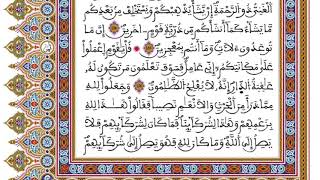 ٱلْغَنِىُّ ذُو ٱلرَّحْمَةِ إِن يَشَأْ يُذْهِبْكُمْ وَيَسْتَخْلِفْ مِنۢ بَعْدِكُم
مَّا يَشَآءُ كَمَآ أَنشَأَكُم مِّن ذُرِّيَّةِ قَوْمٍ ءَاخَرِينَ إِنَّ مَا
تُوعَدُونَ لَـَٔاتٍ وَمَآ أَنتُم بِمُعْجِزِينَ قُلْ يَـٰقَوْمِ ٱعْمَلُوا۟
عَلَىٰ مَكَانَتِكُمْ إِنِّى عَامِلٌ فَسَوْفَ تَعْلَمُونَ مَن تَكُونُ لَهُۥ
عَـٰقِبَةُ ٱلدَّارِ إِنَّهُۥ لَا يُفْلِحُ ٱلظَّـٰلِمُونَ وَجَعَلُوا۟ لِلَّهِ
مِمَّا ذَرَأَ مِنَ ٱلْحَرْثِ وَٱلْأَنْعَـٰمِ نَصِيبًا فَقَالُوا۟ هَـٰذَا لِلَّهِ
بِزَعْمِهِمْ وَهَـٰذَا لِشُرَكَآئِنَا فَمَا كَانَ لِشُرَكَآئِهِمْ فَلَا
يَصِلُ إِلَى ٱللَّهِ وَمَا كَانَ لِلَّهِ فَهُوَ يَصِلُ إِلَىٰ شُرَكَآئِهِمْ